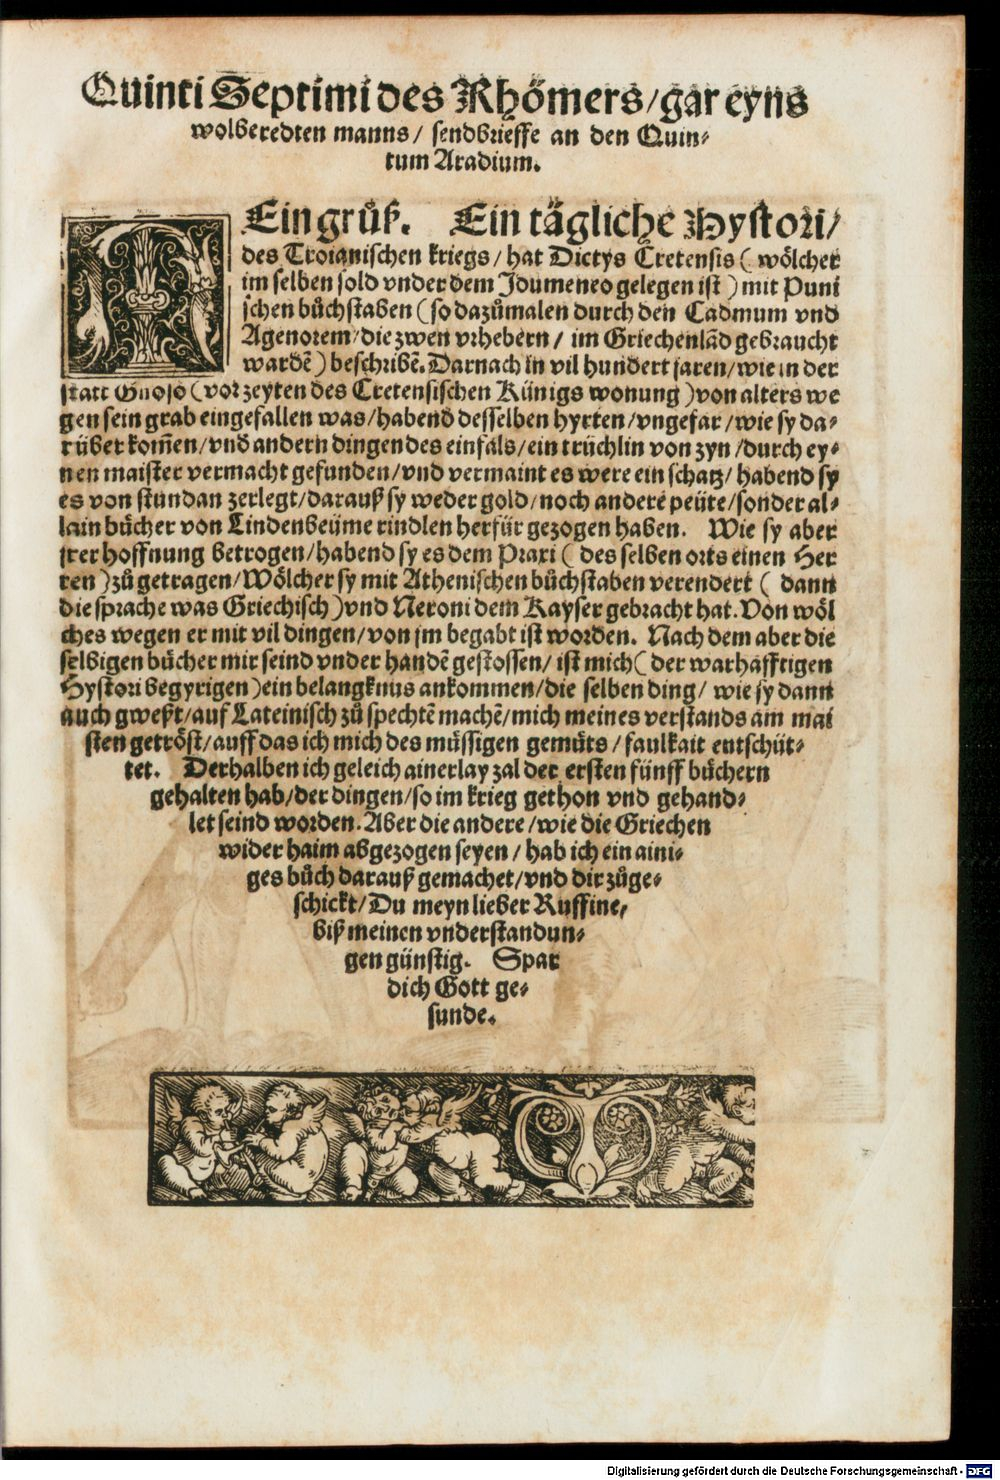 Quinti Septimi des Rhömers/gar eyns
wolberedten manns/ sendbrieffe an den Quin⸗
tum Aradium.
MEin grůß. Ein tägliche Hystori/
des Troianischen kriegs/ hat Dictys Cretensis ( wölcher
im selben sold vnder dem Idumeneo gelegen ist ) mit Puni
schen bůchstaben ( so dazůmalen durch den Cadmum vnd
Agenorem/die zwen vrhebern/ im Griechenlãd gebraucht
wardẽ ) beschribẽ. Darnach in vil hundert jaren/wie in der
statt Gnoso (vor zeyten des Cretensischen Künigs wonung )von alters we
gen sein grab eingefallen was/habend desselben hyrten/vngefar/wie sy da⸗
rüber kom̃en/vnd andern dingen des einfals/ein trüchlin von zyn/durch ey⸗
nen maister vermacht gefunden/vnd vermaint es were ein schatz/ habend sy
es von stundan zerlegt/darauß sy weder gold/noch andere peüte/sonder al⸗
lain bücher von Lindenbeüme rindlen herfür gezogen haben. Wie sy aber
jrer hoffnung betrogen/habend sy es dem Praxi ( des selben orts einen Her
ren )zů getragen/Wölcher sy mit Athenischen bůchstaben verendert ( dann
die sprache was Griechisch )vnd Neroni dem Kayser gebracht hat. Von wöl
ches wegen er mit vil dingen/von jm begabt ist worden. Nach dem aber die
selbigen bücher mir seind vnder handẽ gestossen/ ist mich ( der warhafftigen
Hystori begyrigen )ein belangknus ankommen/die selben ding/ wie sy dann
auch gweßt/auf Lateinisch zů spechtẽ machẽ/mich meines verstands am mai
sten getröst/auff das ich mich des müssigen gemüts/ faulkait entschüt⸗
tet. Derhalben ich geleich ainerlay zal der ersten fünff büchern
gehalten hab/der dingen/so im krieg gethon vnd gehand⸗
let seind worden. Aber die andere/wie die Griechen
wider haim abgezogen seyen/ hab ich ein aini⸗
ges bůch darauß gemachet/vnd dir zůge⸗
schickt/Du meyn lieber Ruffine,
biß meinen vnderstandun⸗
gen günstig. Spar
dich Gott ge⸗
sunde.
Digitalisierung gefördert durch die Deutsche Forschungsgemeinschaft - DFG